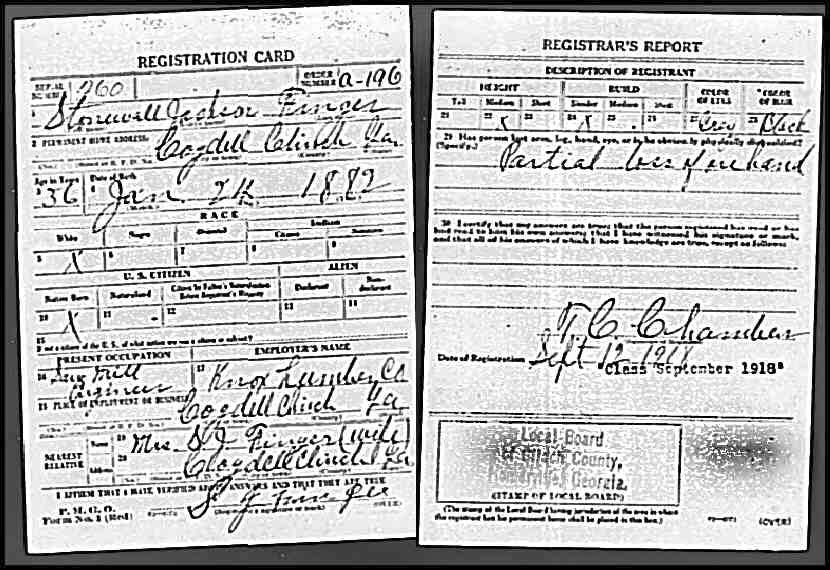 REGISTRATION CARD
SERIAL NUMBER 260 ORDER NUMBER A-196
1 Stonewall Jackson Finger
2 PERMANENT HOME ADDRESS: Cogdell Clinch Ga.
Age in Years Date of Birth
3 36 4 Jan 1882
RACE
White Negro Oriental Indian
Citizen
5 X 6 7 8 9
U. S. CITIZEN ALIEN
Native Born Naturalized Citizen by Father's Naturalization Before Registrant's Majority Declarant Non-declarant
10 X 11 12 13 14
15
If not a citizen of the U. S., of what nation are you a citizen or subject?
PRESENT OCCUPATION EMPLOYER'S NAME
16 Saw Mill 17 Knox Lumber Co
18 PLACE OF EMPLOYMENT OR BUSINESS:
Cogdell Clinch Ga
NEAREST RELATIVE Name 19 Mrs S J Finger (wife)
Address 20 Cogdell Clinch Ga
I AFFIRM THAT I HAVE VERIFIED ABOVE ANSWERS AND THAT THEY ARE TRUE
P. M. G. O.
Form No. 1 (Red) S J Finger (OVER)
REGISTRAR'S REPORT
DESCRIPTION OF REGISTRANT
HEIGHT BUILD COLOR OF EYES COLOR OF HAIR
Tall Medium Short Slender Medium Stout
21 22 X 23 24 X 25 26 27 Grey 28 Black
29 Has person lost arm, leg, hand, eye, or is he obviously physically disqualified?
(Specify.) Partial loss of one hand
30 I certify that my answers are true; that the person registered has read or has
had read to him his own answers; that I have witnessed his signature or mark,
and that all of his answers of which I have knowledge are true, except as follows:
Date of Registration Sept 12 1918
Class September 1918
Local Board
of Clinch County,
Georgia.
(STAMP OF LOCAL BOARD)
(The stamp of the Local Board having jurisdiction of the area in which
the registrant has his permanent home shall be placed in this box.)
(OVER)